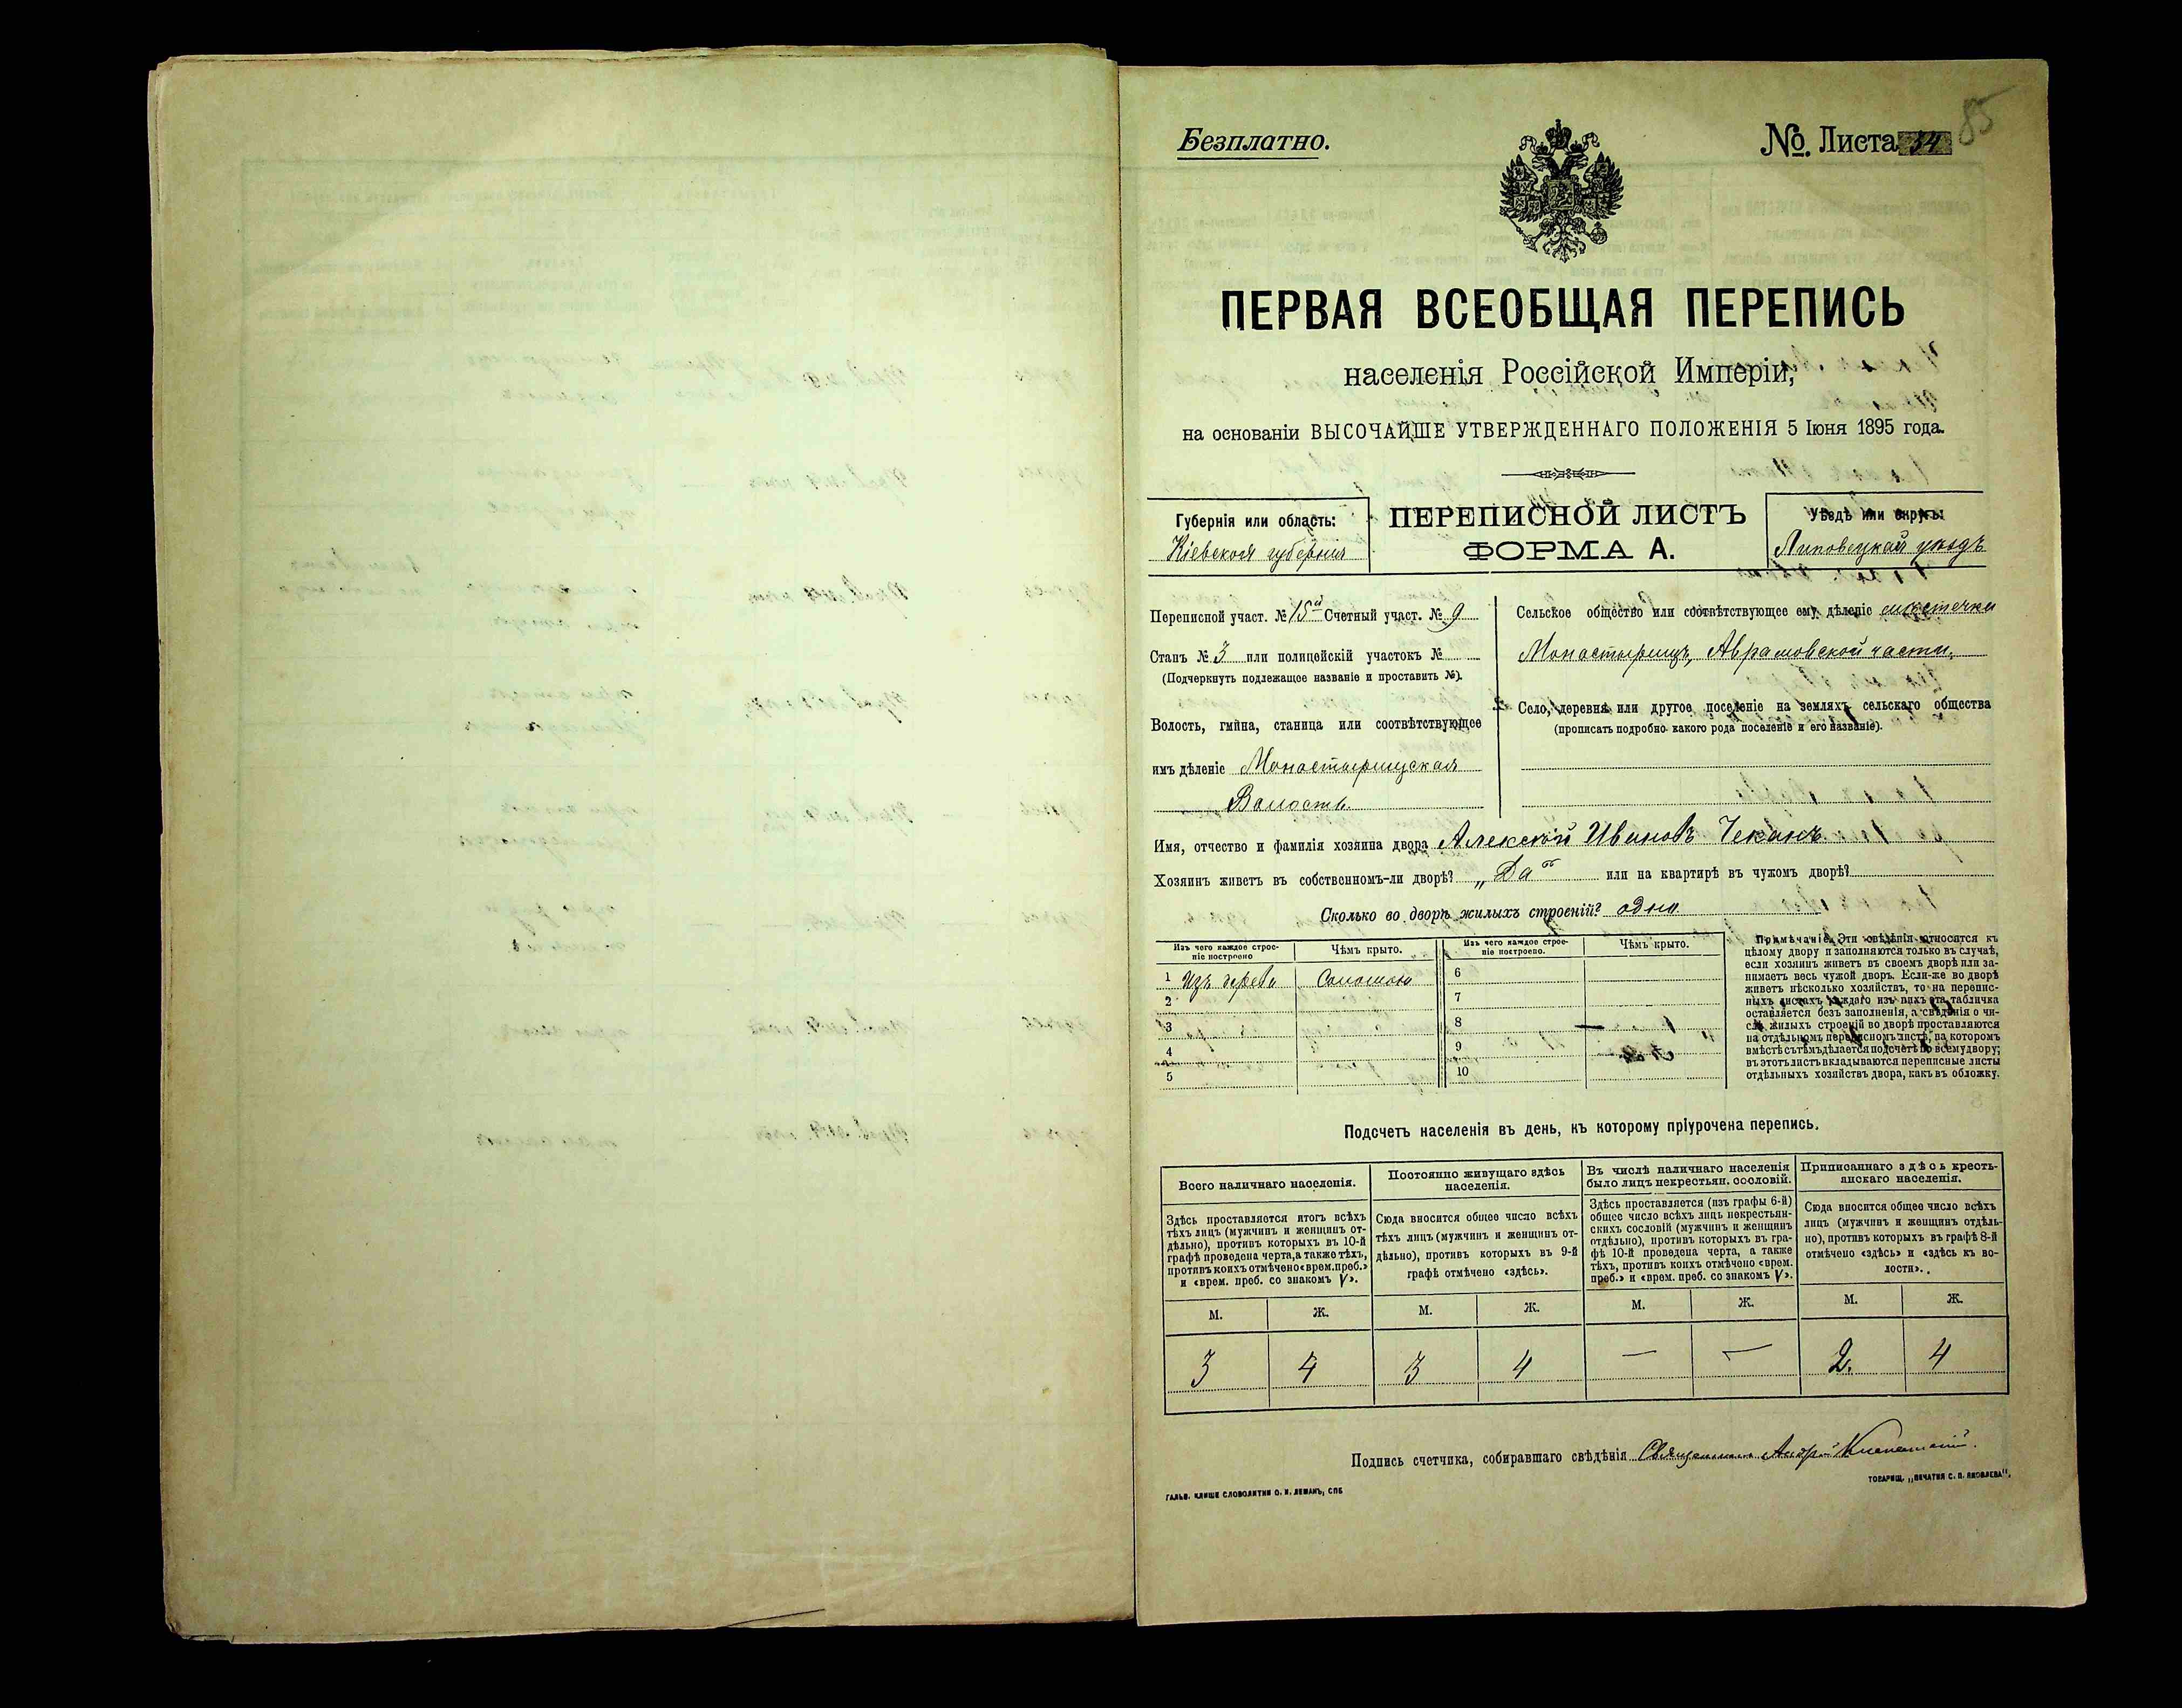 Безплатно.
№ Листа 34
85
ПЕРВАЯ ВСЕОБЩАЯ ПЕРЕПИСЬ
населенія Россійской Имперіи,
на основаніи ВЫСОЧАЙШЕ УТВЕРЖДЕННАГО ПОЛОЖЕНІЯ 5 Іюня 1895 года.
Губернія или область:
Кіевская губернія
ПЕРЕПИСНОЙ ЛИСТЪ
ФОРМА А.
Уѣздъ или округъ:
Липовецкай уѣздъ
Переписной участ. № 15й Счетный участ. № 9
Станъ № 3 или полицейскій участокъ №
(Подчеркнуть подлежащее названіе и проставить №).
Волость, гмина, станица или соотвѣтствующее
имъ дѣленіе Монастырищская
Волость.
Сельское общество или соотвѣтствующее ему дѣленіе мѣстечка
Монастырищъ, Аврамовской части,
Село, деревня или другое поселеніе на земляхъ сельскаго общества
(прописать подробно какого рода поселеніе и его названіе).
Имя, отчество и фамилія хозяина двора Алексѣй Ивановъ Чеканъ
Хозяинъ живетъ въ собственномъ-ли дворѣ? „Да“ или на квартирѣ въ чужомъ дворѣ?
Сколько во дворѣ жилыхъ строеній? одно
Изъ чего каждое строе-
ніе построено
Чѣмъ крыто.
Изъ чего каждое строе-
ніе построено.
Чѣмъ крыто.
1 Изъ дерева Соломою
2
3
4
5
6
7
8
9
10
Примѣчаніе. Эти свѣдѣнія относятся къ
цѣлому двору и заполняются только въ случаѣ,
если хозяинъ живетъ въ своемъ дворѣ или за-
нимаетъ весь чужой дворъ. Если-же во дворѣ
живетъ нѣсколько хозяйствъ, то на перепис-
ныхъ листахъ каждаго изъ нихъ эта табличка
оставляется безъ заполненія, а свѣдѣнія о чи-
слѣ жилыхъ строеній во дворѣ проставляются
на отдѣльномъ переписномъ листѣ, на которомъ
вмѣстѣ съ тѣмъ дѣлается подсчетъ по всему двору;
въ этотъ листъ вкладываются переписные листы
отдѣльныхъ хозяйствъ двора, какъ въ обложку.
Подсчетъ населенія въ день, къ которому пріурочена перепись.
Всего наличнаго населенія.
Постоянно живущаго здѣсь
населенія.
Въ числѣ наличнаго населенія
было лицъ некрестьян. сословій.
Приписаннаго здѣсь кресть-
янскаго населенія.
Здѣсь проставляется итогъ всѣхъ
тѣхъ лицъ (мужчинъ и женщинъ от-
дѣльно), противъ которыхъ въ 10-й
графѣ проведена черта, а также тѣхъ,
противъ коихъ отмѣчено «врем. преб.»
и «врем. преб. со знакомъ V».
Сюда вносится общее число всѣхъ
тѣхъ лицъ (мужчинъ и женщинъ от-
дѣльно), противъ которыхъ въ 9-й
графѣ отмѣчено «здѣсь».
Здѣсь проставляется (изъ графы 6-й)
общее число всѣхъ лицъ некрестьян-
скихъ сословій (мужчинъ и женщинъ
отдѣльно), противъ которыхъ въ гра-
фѣ 10-й проведена черта, а также
тѣхъ, противъ коихъ отмѣчено «врем.
преб.» и «врем. преб. со знакомъ V».
Сюда вносится общее число всѣхъ
лицъ (мужчинъ и женщинъ отдѣль-
но), противъ которыхъ въ графѣ 8-й
отмѣчено «здѣсь» и «здѣсь въ во-
лости».
М. Ж. М. Ж. М. Ж. М. Ж.
3 4 3 4 — — 2. 4
Подпись счетчика, собиравшаго свѣдѣнія Священникъ Андрей
ГАЛЬВ. КЛИШЕ СЛОВОЛИТНИ О. И. ЛЕМАНЪ, СПБ
ТОВАРИЩ. „ПЕЧАТНЯ С. П. ЯКОВЛЕВА“.